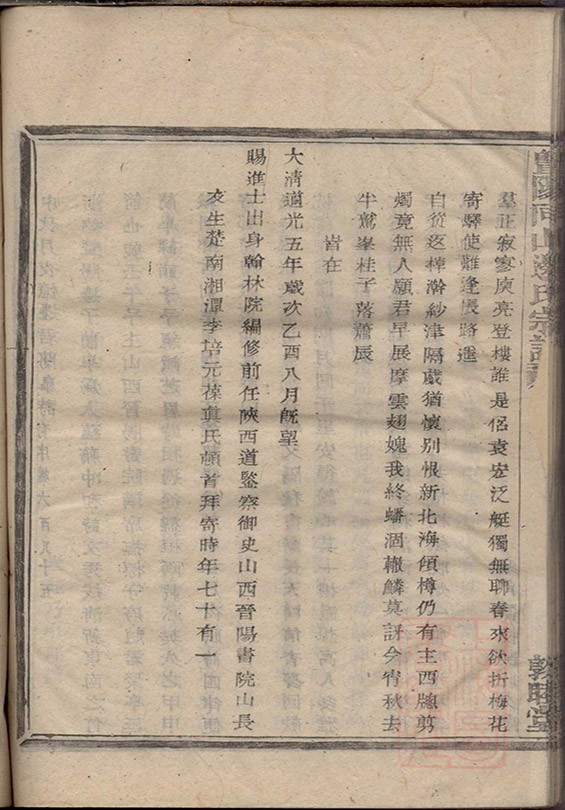 暨陽同山邊氏宗譜
敦睦堂
羣正寂寥庾亮登樓誰是侶袁宏泛艇獨無聊春來欲折梅花
寄驛使難逢悵路遙
自從返棹瀚紗津隔歲猶懷别恨新北海傾樽仍有主西牕剪
燭竟無人願君早展摩雲翅媿我終蟠涸轍鱗莫訝今宵秋去
半鷲峯桂子落蕭辰
旹在
大清道光五年歲次乙酉八月旣望
賜進士出身翰林院編修前任陝西道監察御史山西晉陽書院山長
友生楚南湘潭李培元葆真氏頓首拜寄時年七十有一